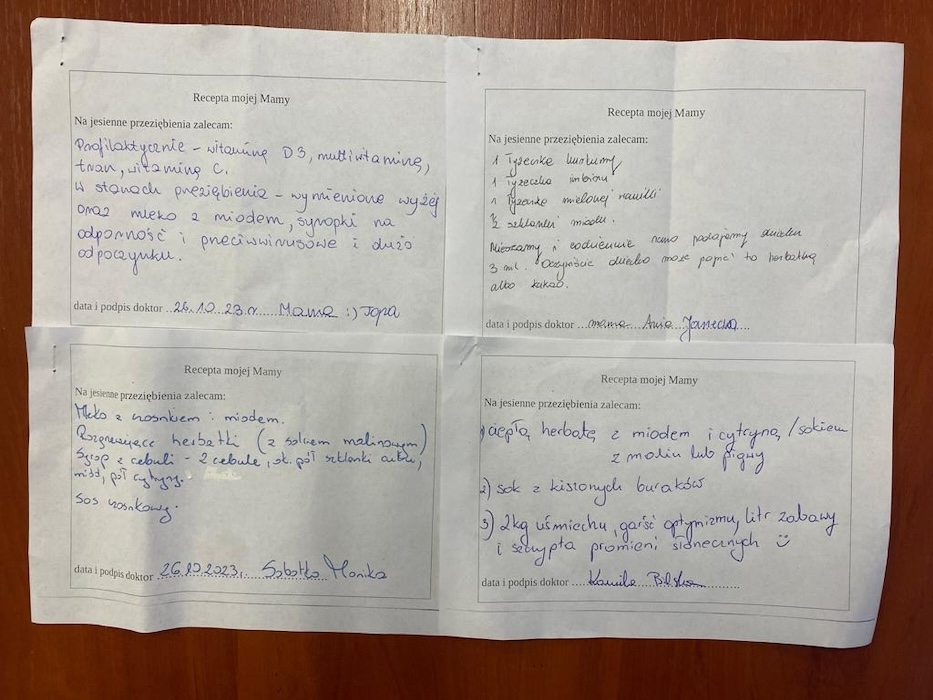 Recepta mojej Mamy
Na jesienne przeziębienia zalecam:
Profilaktycznie – witaminę D3, multiwitaminę,
tran, witaminę C.
W stanach przeziębienia – wymienione wyżej
oraz mleko z miodem, syropki na
odporność i przeciwwirusowe i dużo
odpoczynku.
data i podpis doktor 26.10.23r Mama :)
Recepta mojej Mamy
Na jesienne przeziębienia zalecam:
1 łyżeczkę kurkumy
1 łyżeczka imbiru
1 łyżeczkę mielonej wanilii
1/2 szklanki miodu.
Mieszamy i codziennie rano podajemy dziecku
3 ml. Oczywiście dziecko może popić to herbatką
albo kakao.
data i podpis doktor mama Ania
Recepta mojej Mamy
Na jesienne przeziębienia zalecam:
Mleko z czosnkiem i miodem.
Rozgrzewające herbatki (z sokiem malinowym)
Syrop z cebuli – 2 cebule, ok. pół szklanki cukru,
miód, pół cytryny.
Sos czosnkowy.
data i podpis doktor 26.10.2023, Sobotka Monika
Recepta mojej Mamy
Na jesienne przeziębienia zalecam:
1) ciepłą herbatę z miodem i cytryną /sokiem
z malin lub pigwy
2) sok z kiszonych buraków
3) 2kg uśmiechu, garść optymizmu, litr zabawy
i szczypta promieni słonecznych ☺
data i podpis doktor Kamila